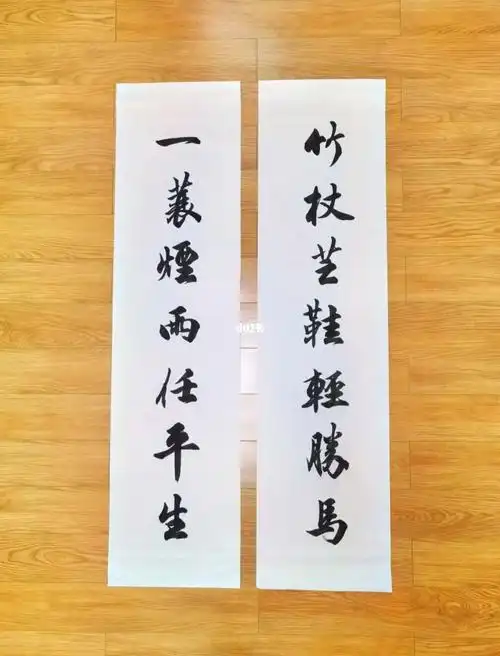 竹杖芒鞋輕勝馬
一蓑煙雨任平生